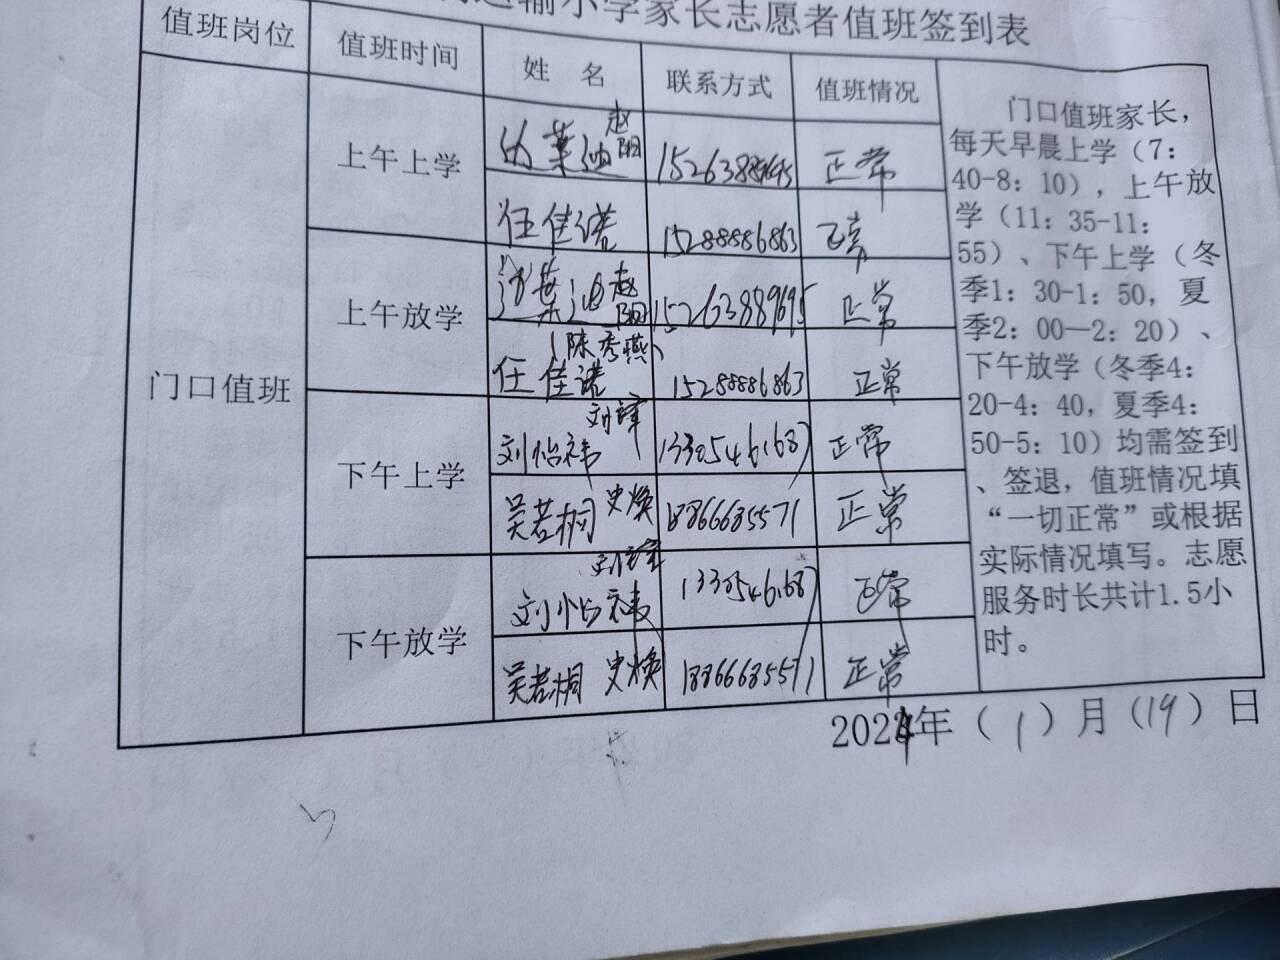 运输小学家长志愿者值班签到表
值班岗位 值班时间 姓 名 联系方式 值班情况
门口值班
上午上学
赵阳
正常
任佳诺 15288886863 正常
上午放学
赵阳 15263889695 正常
(陈秀燕)
任佳诺 15288886863 正常
下午上学
刘怡祎 13305461687 正常
吴若桐 史焕 18866685571 正常
下午放学
刘怡祎 13305461687 正常
吴若桐 史焕 18866685571 正常
门口值班家长，
每天早晨上学（7：
40-8：10），上午放
学（11：35-11：
55）、下午上学（冬
季1：30-1：50，夏
季2：00—2：20）、
下午放学（冬季4：
20-4：40，夏季4：
50-5：10）均需签到
、签退，值班情况填
“一切正常”或根据
实际情况填写。志愿
服务时长共计1.5小
时。
2024年（1）月（19）日